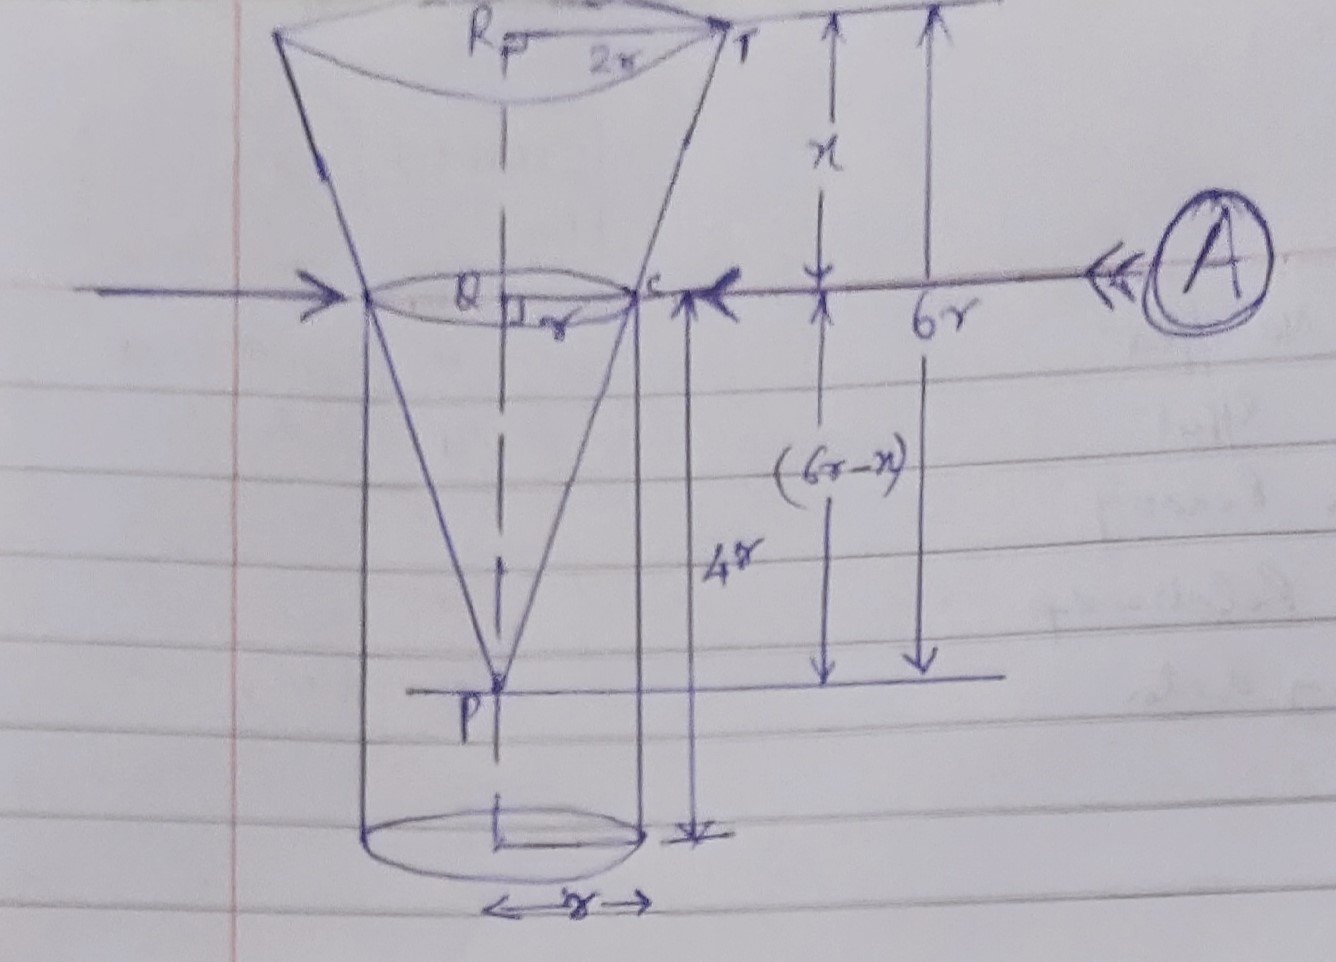 R
2r
T
x
A
Q
r
C
6r
(6r-x)
4r
P
r